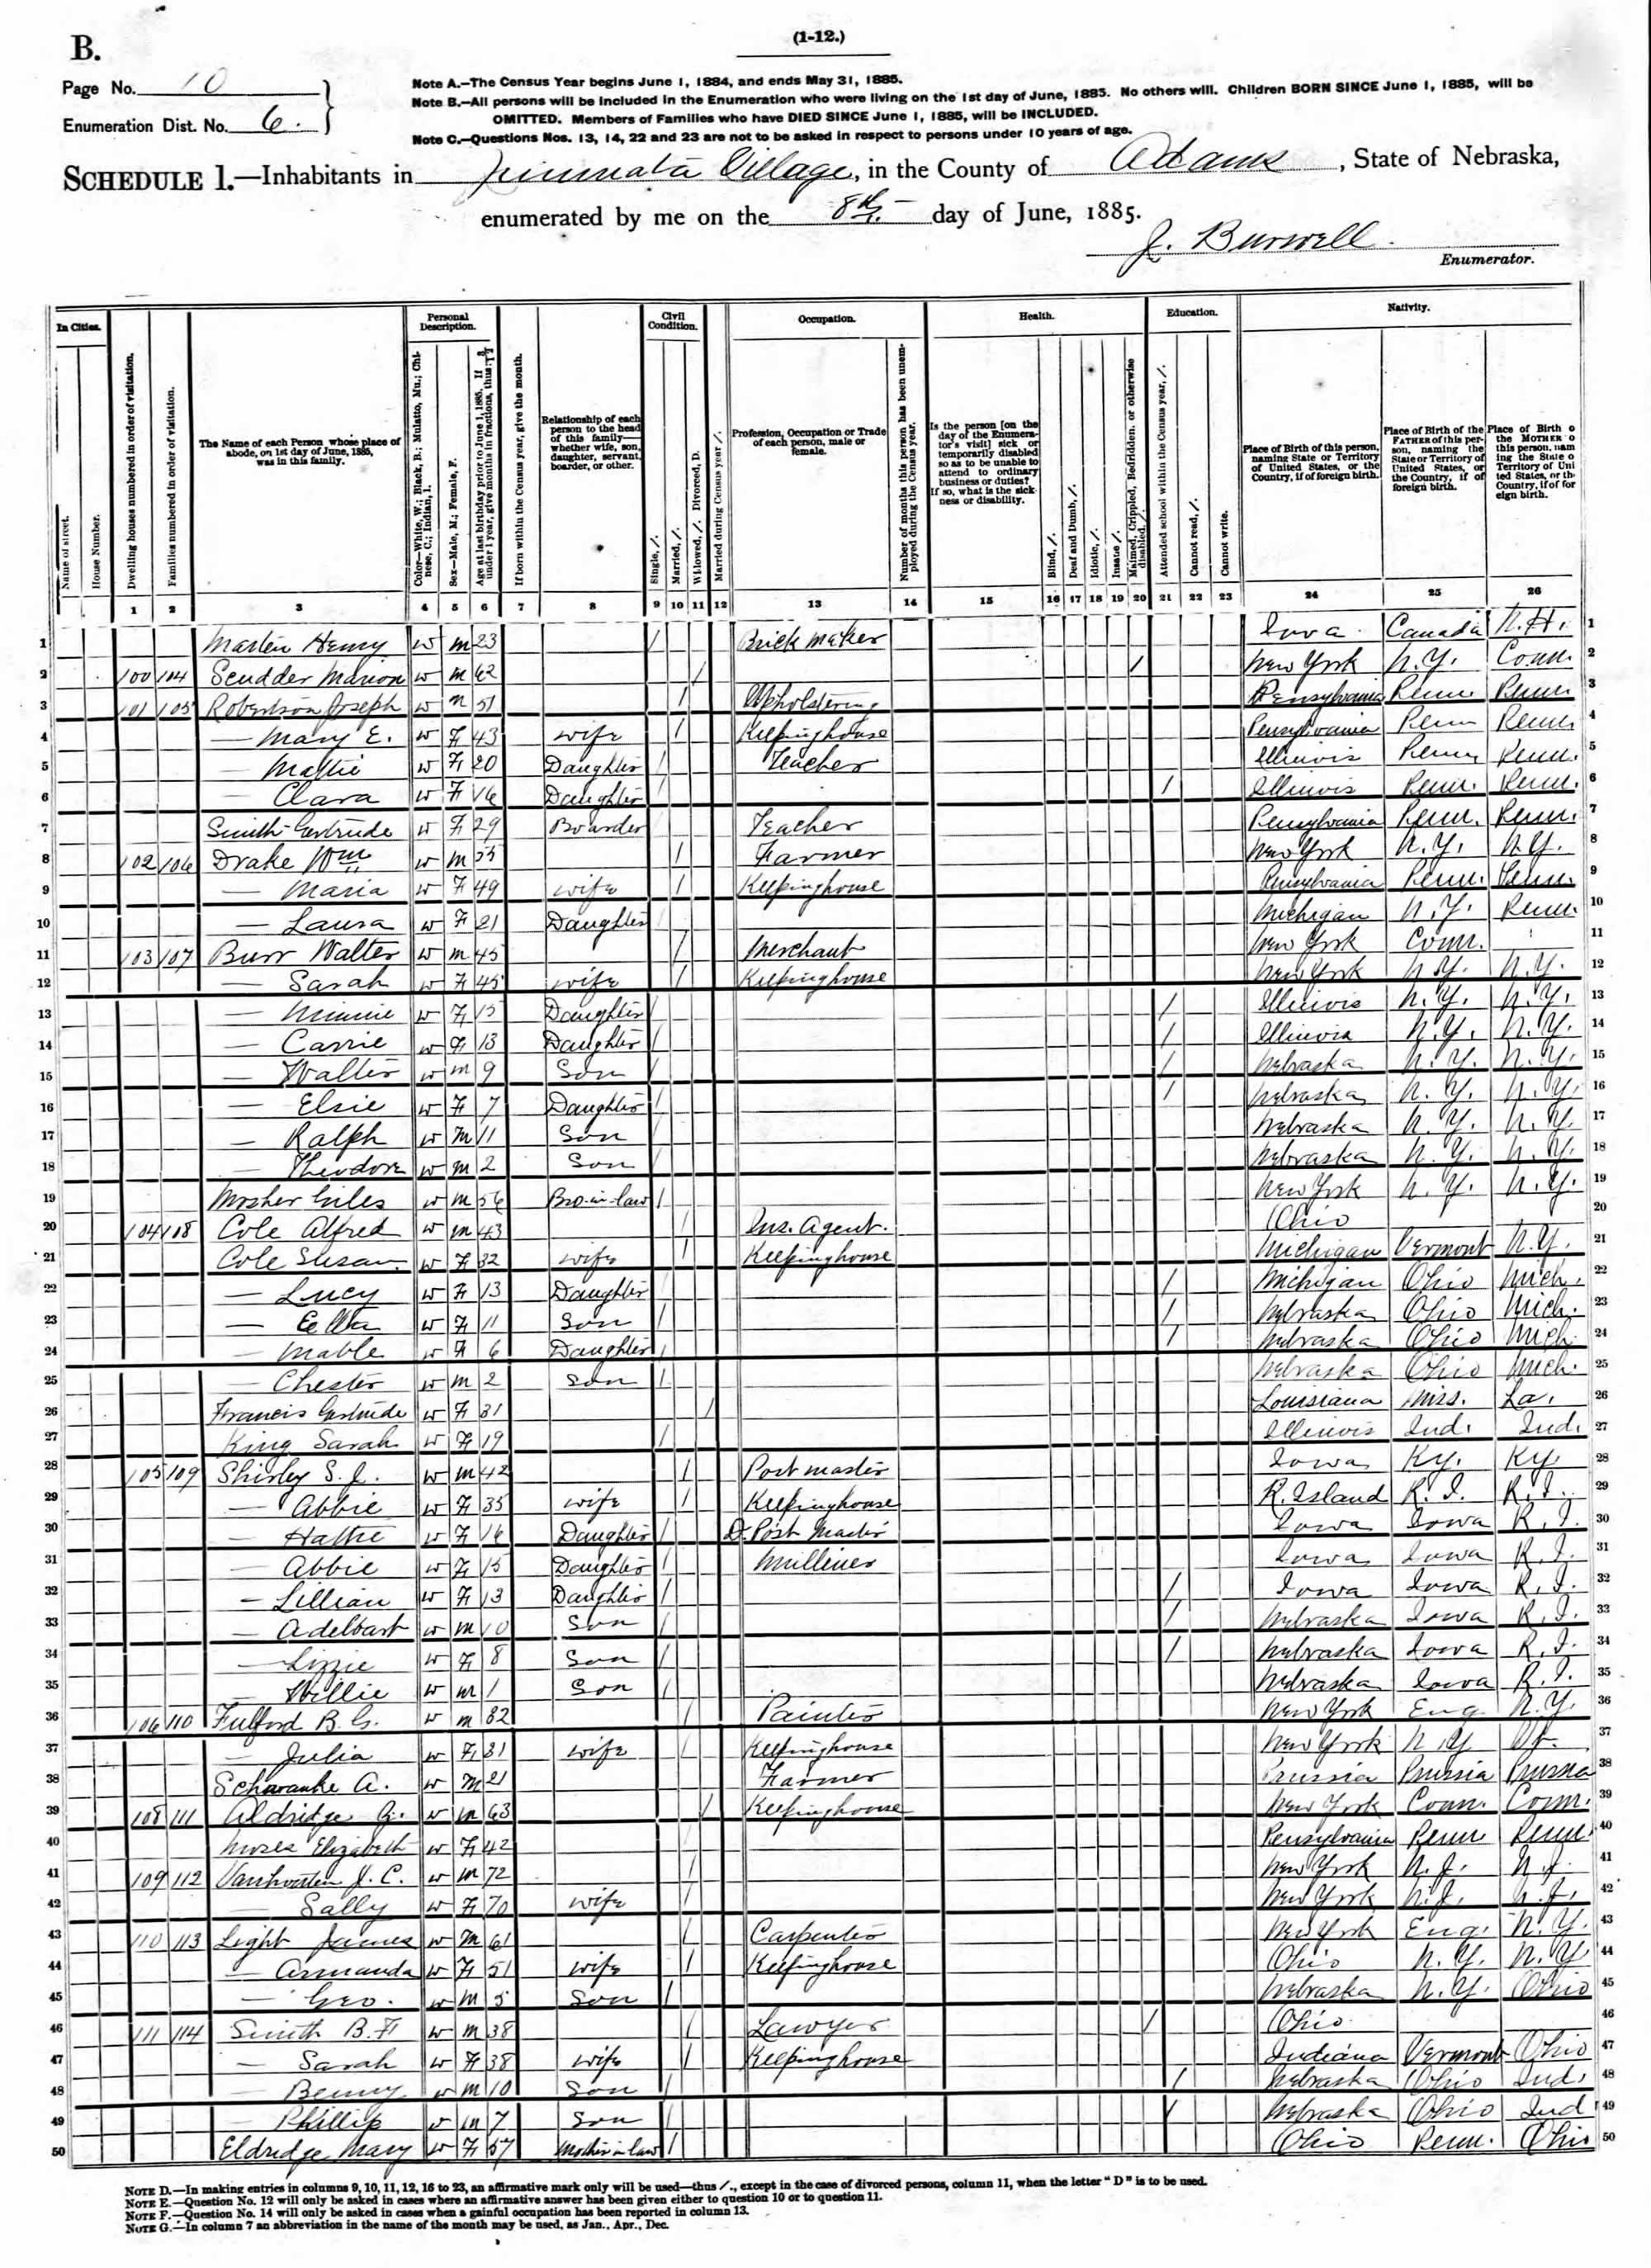 B.
(1-12.)
Page No. 10
Enumeration Dist. No. 6.
Note A.—The Census Year begins June 1, 1884, and ends May 31, 1885.
Note B.—All persons will be included in the Enumeration who were living on the 1st day of June, 1885. No others will. Children BORN SINCE June 1, 1885, will be
OMITTED. Members of Families who have DIED SINCE June 1, 1885, will be INCLUDED.
Note C.—Questions Nos. 13, 14, 22 and 23 are not to be asked in respect to persons under 10 years of age.
SCHEDULE 1.—Inhabitants in Juniata Village, in the County of Adams, State of Nebraska,
enumerated by me on the 8th day of June, 1885.
J. Burwell
Enumerator.
In Cities. Personal Description. Civil Condition. Occupation. Health. Education. Nativity.
Name of street.
House Number.
Dwelling houses numbered in order of visitation.
Families numbered in order of visitation.
The Name of each Person whose place of abode, on 1st day of June, 1885, was in this family.
Color—White, W.; Black, B.; Mulatto, Mu.; Chinese, C.; Indian, I.
Sex—Male, M.; Female, F.
Age at last birthday prior to June 1, 1885. If under 1 year, give months in fractions, thus:
If born within the Census year, give the month.
Relationship of each person to the head of this family—whether wife, son, daughter, servant, boarder, or other.
Single, /.
Married, /.
Widowed, /. Divorced, D.
Married during Census year /.
Profession, Occupation or Trade of each person, male or female.
Number of months this person has been unemployed during the Census year.
Is the person [on the day of the Enumerator's visit] sick or temporarily disabled so as to be unable to attend to ordinary business or duties? If so, what is the sickness or disability.
Blind, /.
Deaf and Dumb, /.
Idiotic, /.
Insane /.
Maimed, Crippled, Bedridden, or otherwise disabled, /.
Attended school within the Census year, /.
Cannot read, /.
Cannot write.
Place of Birth of this person, naming State or Territory of United States, or the Country, if of foreign birth.
Place of Birth of the FATHER of this person, naming the State or Territory of United States, or the Country, if of foreign birth.
Place of Birth o the MOTHER o this person, nam ing the State o Territory of Uni ted States, or th Country, if of for eign birth.
1 2 3 4 5 6 7 8 9 10 11 12 13 14 15 16 17 18 19 20 21 22 23 24 25 26
1 Martin Henry W M 23 / Brick Maker Iowa Canada N.H. 1
2 100 104 Scudder Marion W M 62 / / New York N.Y. Conn. 2
3 101 105 Robertson Joseph W M 51 / Upholstering Pensylvania Penn Penn 3
4 — Mary E. W F 43 wife / Keepinghouse Pensylvania Penn Penn 4
5 — Mattie W F 20 Daughter / Teacher Illinois Penn Penn. 5
6 — Clara W F 16 Daughter / / Illinois Penn. Penn. 6
7 Smith Gertrude W F 29 Boarder Teacher Pensylvania Penn. Penn. 7
8 102 106 Drake Wm W M 55 / Farmer New York N.Y. N.Y. 8
9 — Maria W F 49 wife / Keepinghouse Pensylvania Penn. Penn. 9
10 — Laura W F 21 Daughter Michigan N.Y. Penn. 10
11 103 107 Burr Walter W M 45 / Merchant New York Conn. 11
12 — Sarah W F 45 wife / Keepinghouse New York N.Y. N.Y. 12
13 — Minnie W F 15 Daughter / / Illinois N.Y. N.Y. 13
14 — Carrie W F 13 Daughter / / Illinois N.Y. N.Y. 14
15 — Walter W M 9 Son / / Nebraska N.Y. N.Y. 15
16 — Elsie W F 7 Daughter / / Nebraska N.Y. N.Y. 16
17 — Ralph W M 11 Son / Nebraska N.Y. N.Y. 17
18 — Theodore W M 2 Son / Nebraska N.Y. N.Y. 18
19 Mosher Giles W M 56 Bro-in-law / New York N.Y. N.Y. 19
20 104 108 Cole Alfred W M 43 / Ins. Agent. Ohio 20
21 Cole Susan W F 32 wife / Keepinghouse Michigan Vermont N.Y. 21
22 — Lucy W F 13 Daughter / / Michigan Ohio Mich. 22
23 — W F 11 Son / / Nebraska Ohio Mich. 23
24 — Mable W F 6 Daughter / / Nebraska Ohio Mich 24
25 — Chester W M 2 Son / Nebraska Ohio Mich. 25
26 Francis Gertrude W F 31 / Louisiana Miss. La. 26
27 King Sarah W F 19 / Illinois Ind. Ind. 27
28 105 109 Shirley S. J. W M 42 / Post master Iowa Ky. Ky. 28
29 — Abbie W F 35 wife / Keepinghouse R. Island R.I. R.I. 29
30 — Hattie W F 16 Daughter / D. Post Master Iowa Iowa R.I. 30
31 — Abbie W F 15 Daughter / Milliner Iowa Iowa R.I. 31
32 — Lillian W F 13 Daughter / / Iowa Iowa R.I. 32
33 — Adelbart W M 10 Son / / Nebraska Iowa R.I. 33
34 — Lizzie W F 8 Son / / Nebraska Iowa R.I. 34
35 — Willie W M 1 Son / Nebraska Iowa R.I. 35
36 106 110 Fulford B. G. W M 32 / Painter New York Eng. N.Y. 36
37 — Julia W F 31 wife / Keepinghouse New York N.Y. 37
38 Schwanke A. W M 21 Farmer Prussia Prussia Prussia 38
39 108 111 Aldridge G. W M 63 / Keepinghouse New York Conn. Conn. 39
40 Moses Elizabeth W F 42 / Pensylvania Penn Penn 40
41 109 112 Vanhouten J. C. W M 72 / New York N.J. N.J. 41
42 — Sally W F 70 wife / New York N.J. N.J. 42
43 110 113 Light James W M 61 / Carpenter New York Eng. N.Y. 43
44 — Armanda W F 51 wife / Keepinghouse Ohio N.Y. N.Y 44
45 — Geo. W M 5 Son / Nebraska N.Y. Ohio 45
46 111 114 Smith B. F W M 38 / Lawyer / Ohio 46
47 — Sarah W F 38 wife / Keepinghouse Indiana Vermont Ohio 47
48 — Benny W M 10 Son / / Nebraska Ohio Ind. 48
49 — Phillip W M 7 Son / / Nebraska Ohio Ind 49
50 Eldridge Mary W F 57 Mother in law / Ohio Penn. Ohio 50
NOTE D.—In making entries in columns 9, 10, 11, 12, 16 to 23, an affirmative mark only will be used—thus /., except in the case of divorced persons, column 11, when the letter "D" is to be used.
NOTE E.—Question No. 12 will only be asked in cases where an affirmative answer has been given either to question 10 or to question 11.
NOTE F.—Question No. 14 will only be asked in cases when a gainful occupation has been reported in column 13.
NOTE G.—In column 7 an abbreviation in the name of the month may be used, as Jan., Apr., Dec.